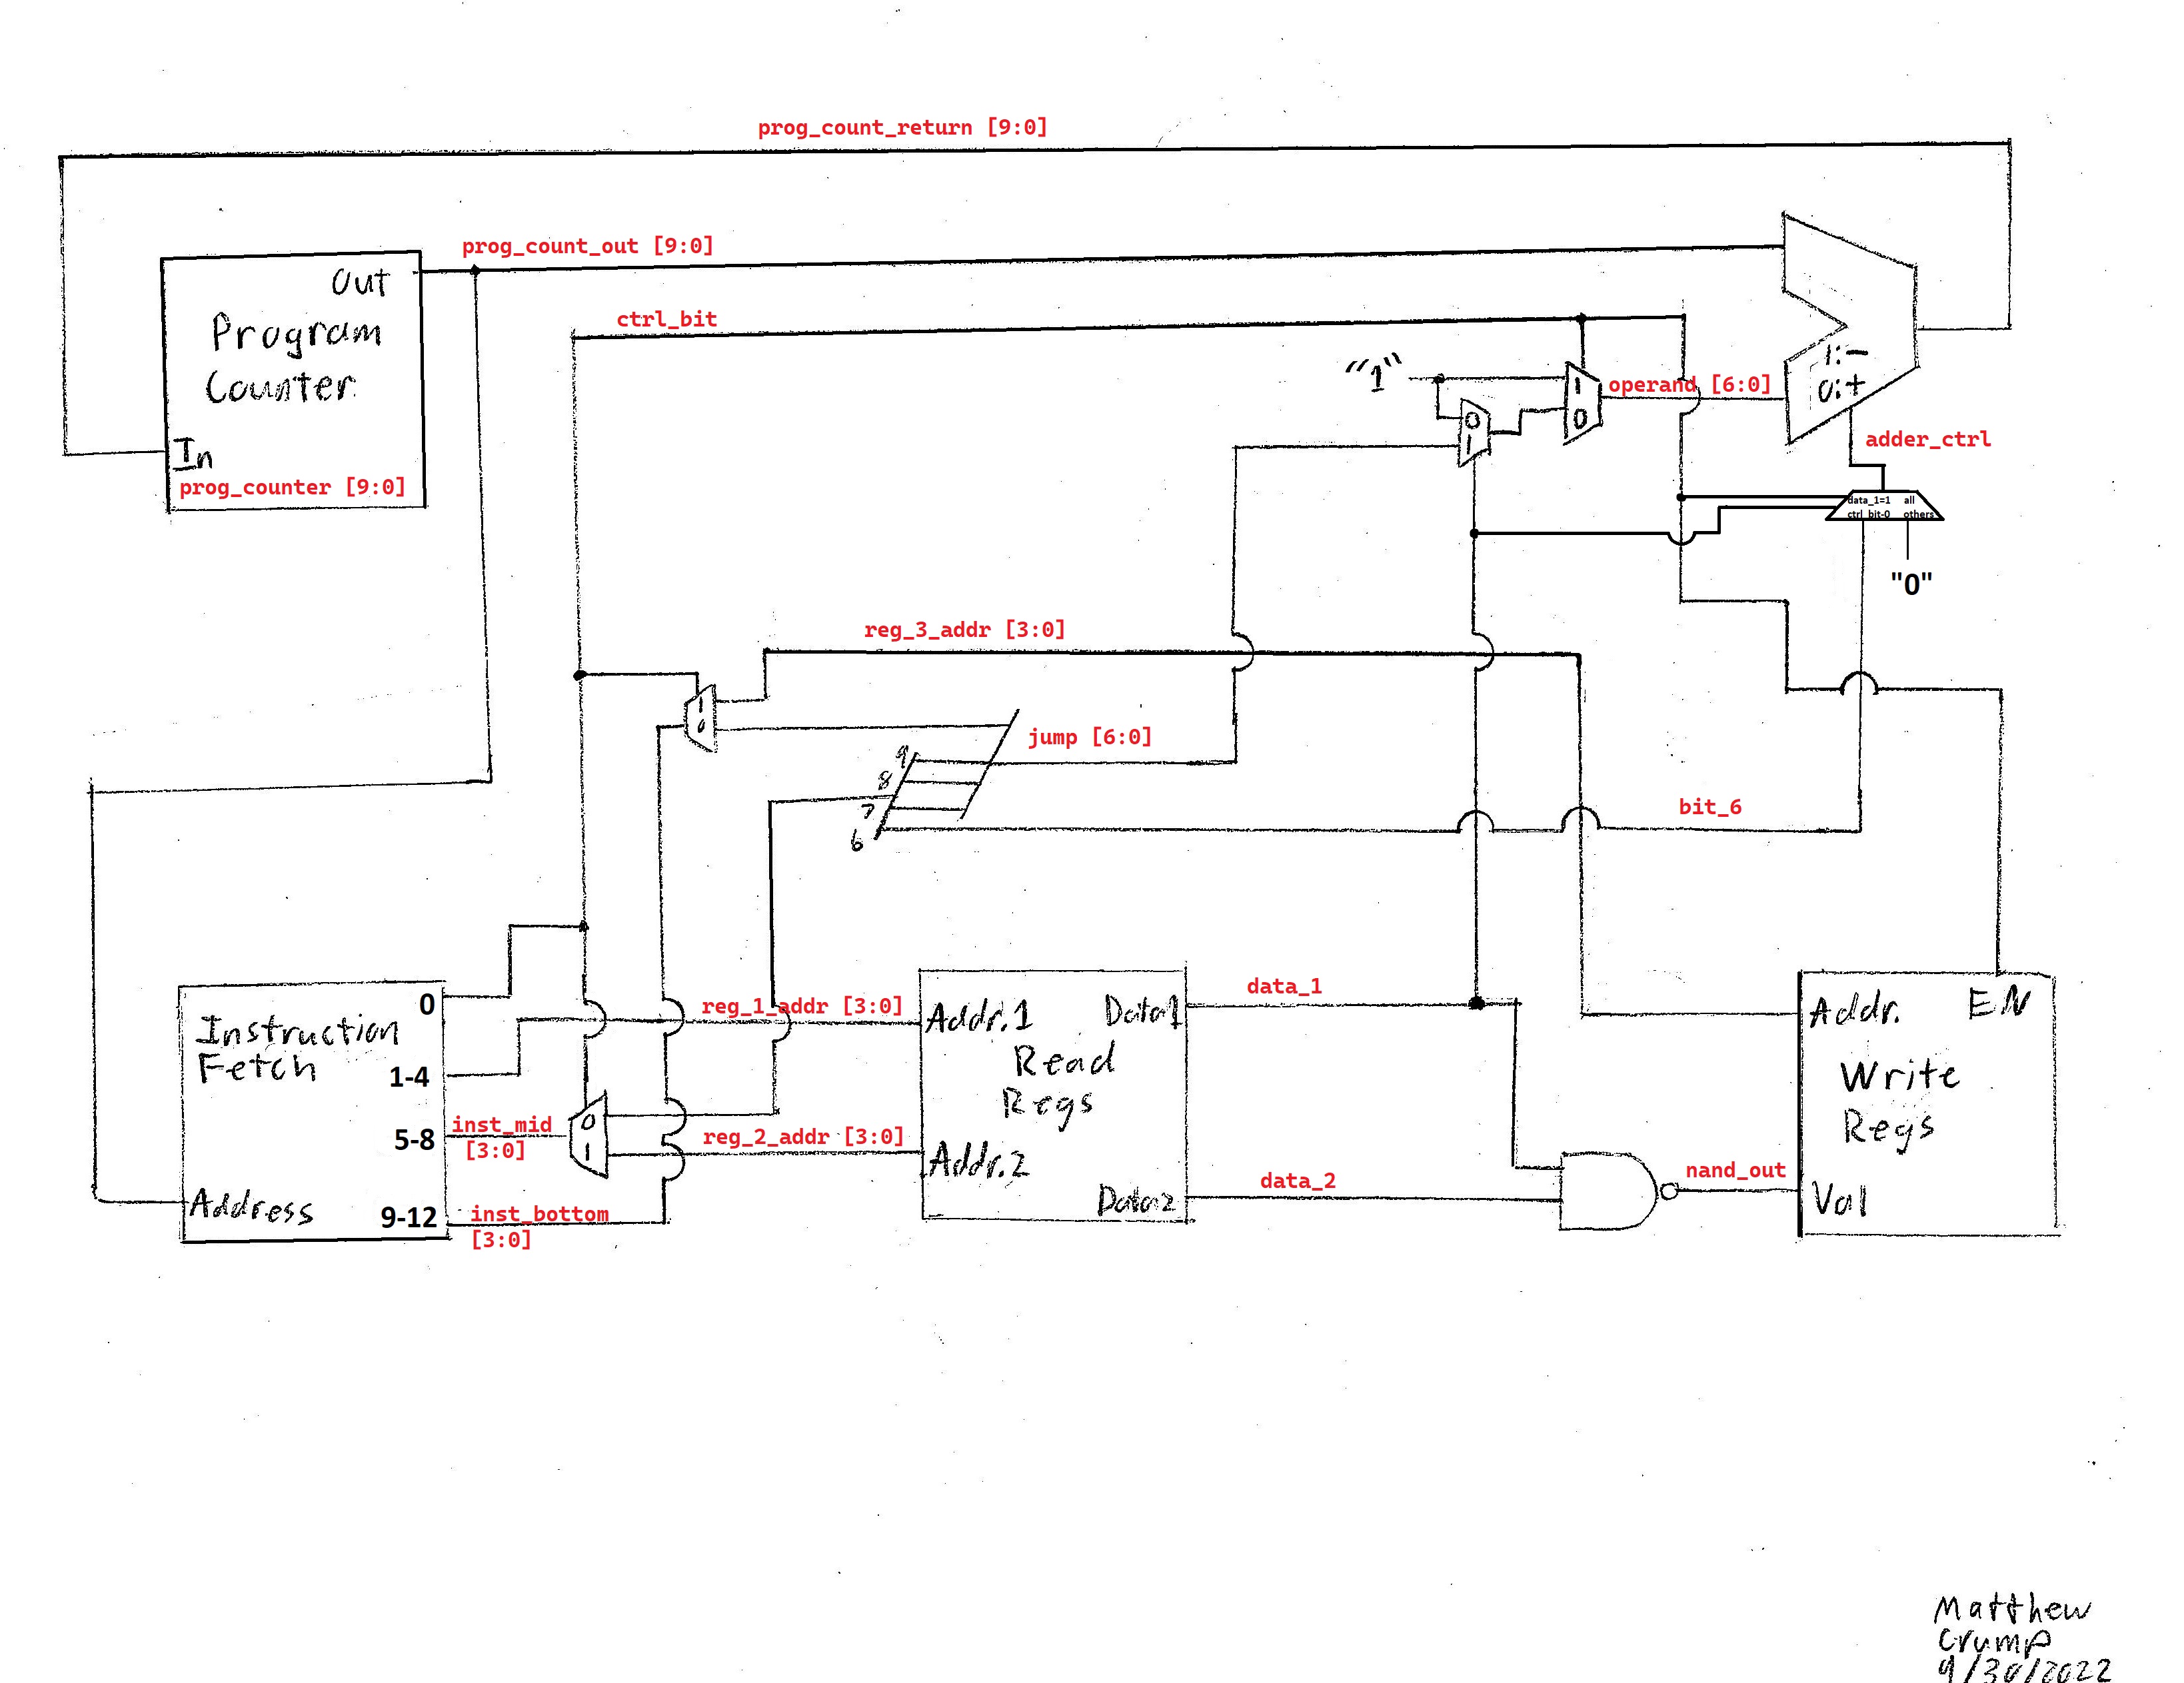 prog_count_return [9:0]
prog_count_out [9:0]
Out
Program
Counter
In
prog_counter [9:0]
ctrl_bit
"1"
0
1
1
0
operand [6:0]
1:-
0:+
adder_ctrl
data_1=1 all
ctrl_bit-0 others
"0"
reg_3_addr [3:0]
1
0
jump [6:0]
9
8
7
6
bit_6
Instruction
Fetch
0
1-4
5-8
9-12
Address
inst_mid
[3:0]
inst_bottom
[3:0]
0
1
reg_1_addr [3:0]
reg_2_addr [3:0]
Addr.1
Data1
Read
Regs
Addr.2
Data2
data_1
data_2
nand_out
Addr.
EN
Write
Regs
Val
Matthew
Crump
9/30/2022